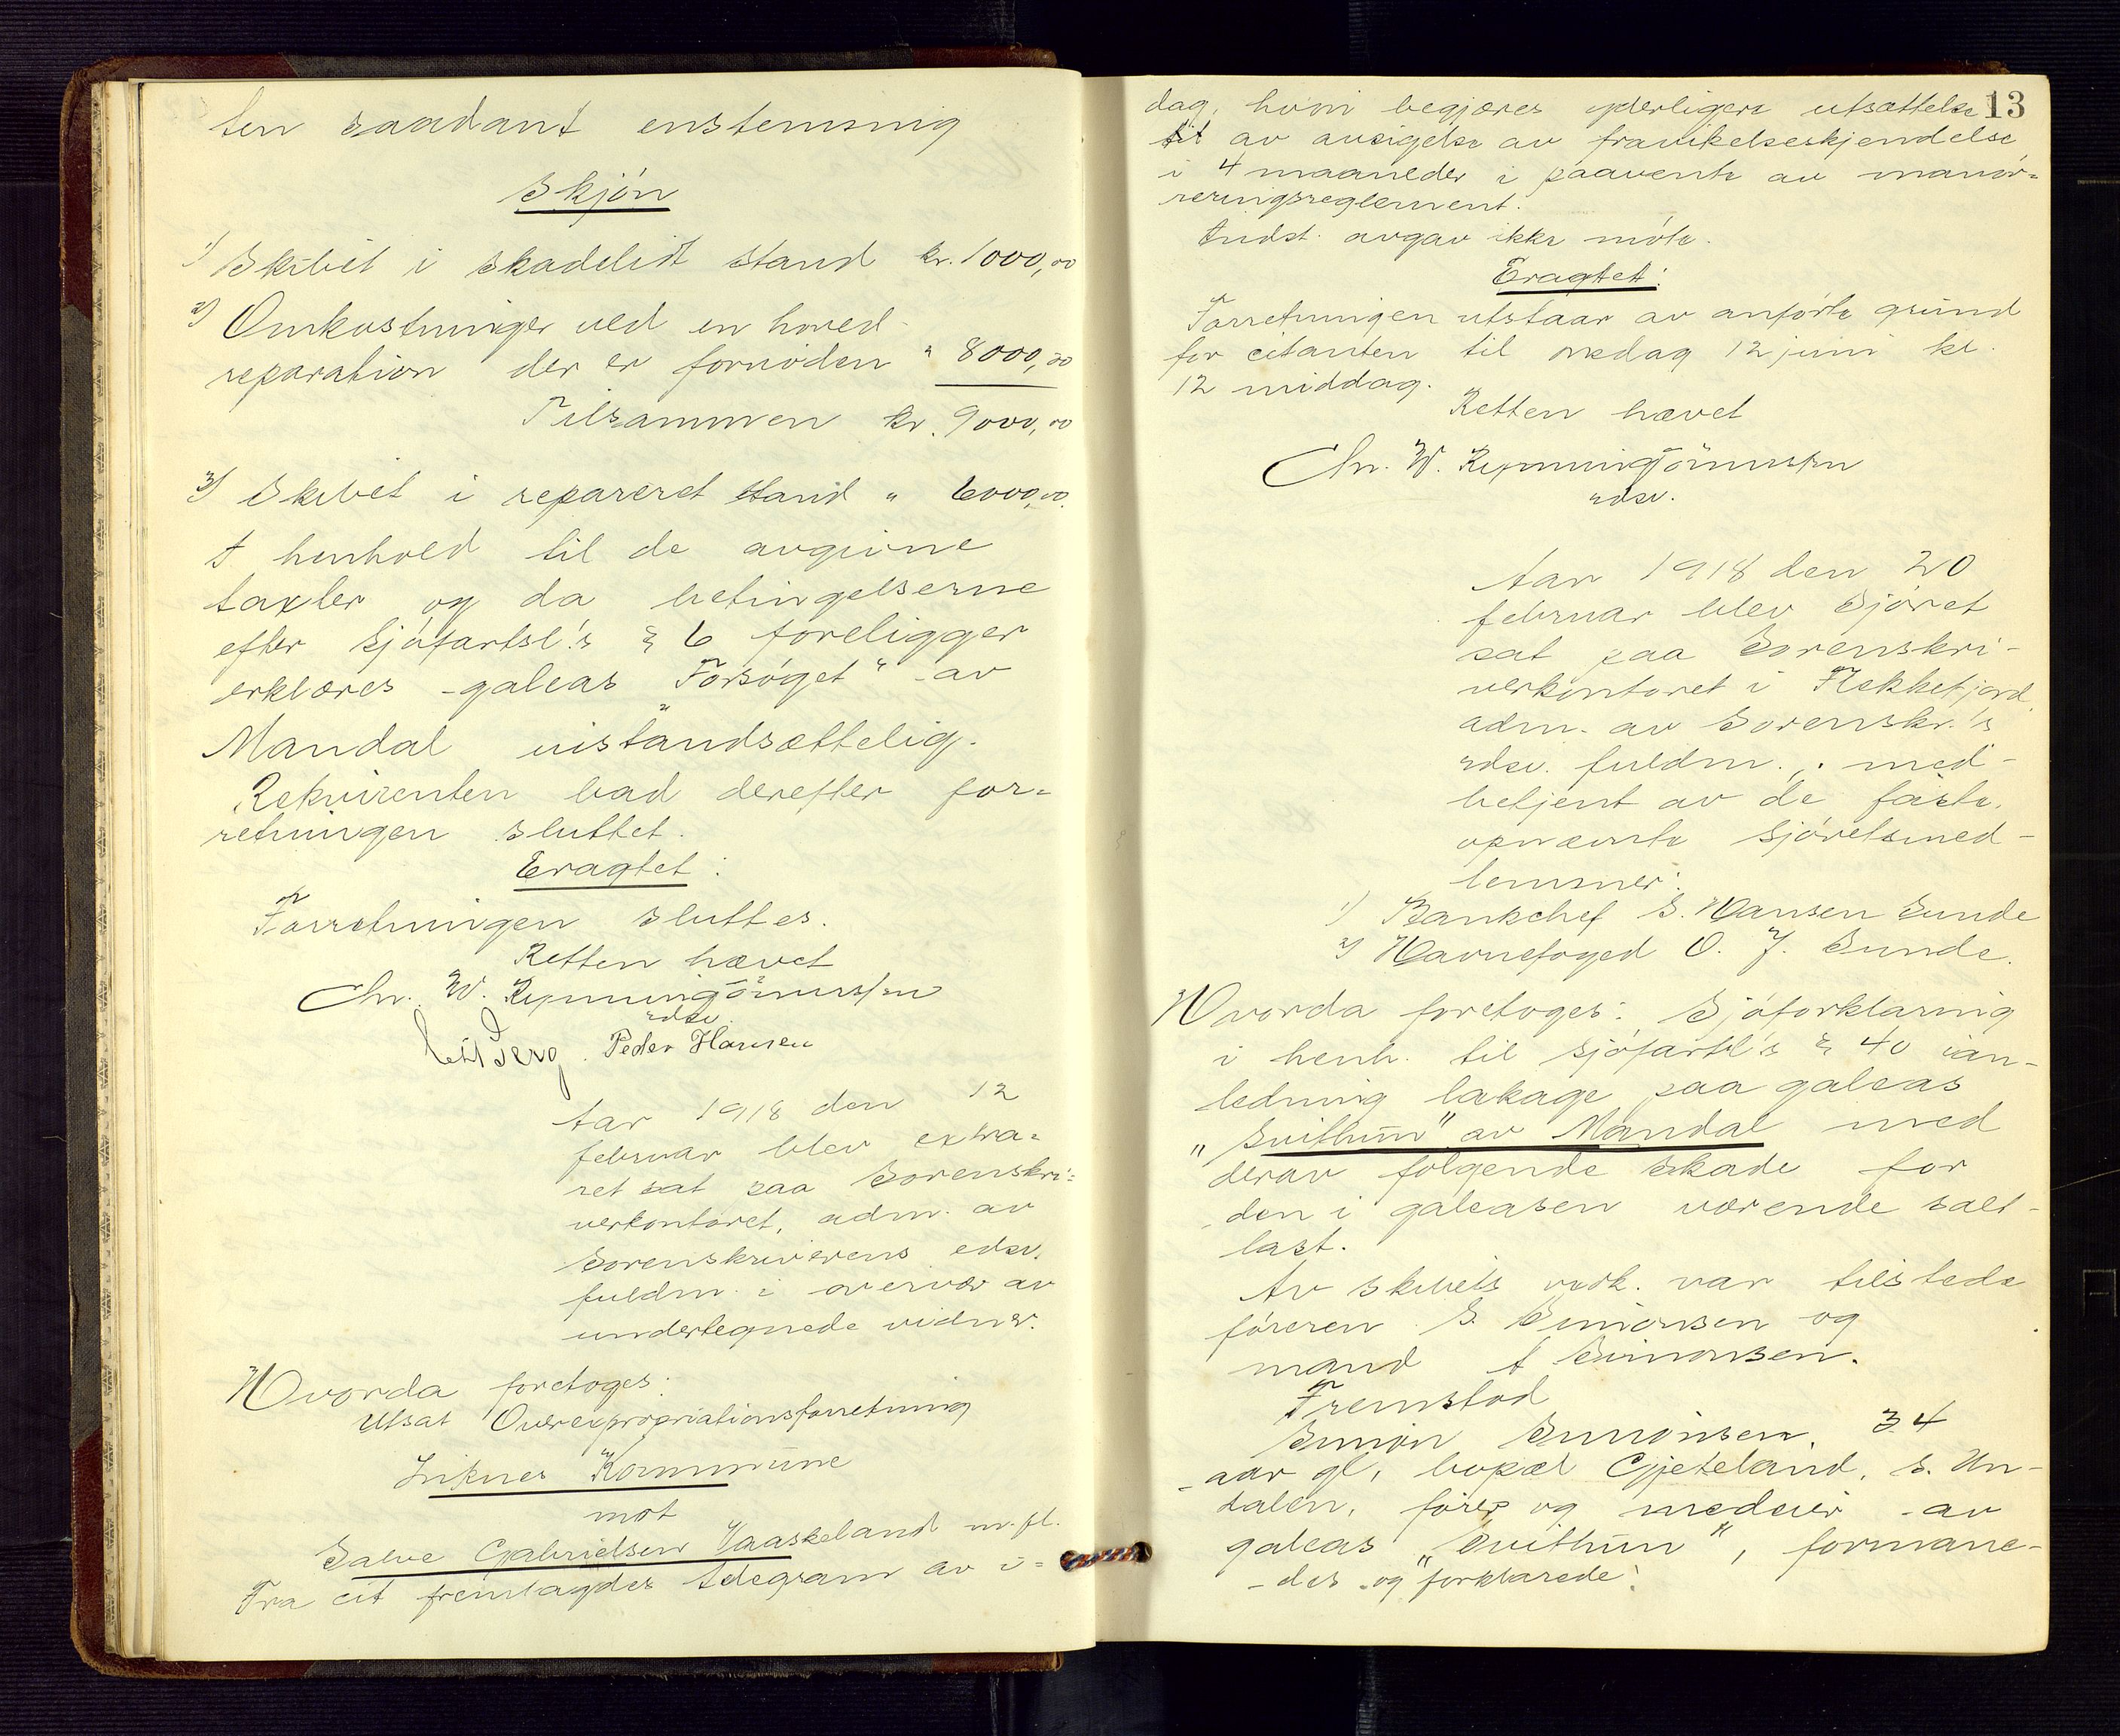 ten saadant enstemmig
Skjøn
1) Skibet i skadelidt stand kr. 1000,00
2) Omkostninger ved en hoved-
reparation der er fornøden " 8000,00
Tilsammen kr. 9000,00
3) Skibet i reparert stand " 6000,00.
I henhold til de avgivne
takster og da betingelserne
efter sjøfartsl.'s § 6 foreligger
erklæres galeas "Forsøget" av
Mandal uistandsættelig.
Rekvirenten bad derefter for-
retningen sluttet.
Eragtet:
Forretningen sluttes.
Retten hævet
Chr. W. Rynning Tønnesen
edsv.
Berg. Peder Hansen
Aar 1918 den 12
februar blev extra-
ret sat paa Sorenskri-
verkontoret, adm. av
Sorenskriverens edsv.
fuldm. i overvær av
undertegnede vidner.
Hvorda foretoges:
Utsat Overexpropriationsforretning
Liknes Kommune
mot
Salve Gabrielsen Vaaskeland m. fl.
Fra cit fremlagdes telegram av i-
13
dag, hvori begjæres yderligere utsættelse
til av avsigelse av fravikelseskjendelse
i 4 maaneder i paavente av manøv-
reringsreglement.
Indst. avgav ikke møte.
Eragtet:
Forretningen utstaar av anførte grund
for citanten til onsdag 12 juni kl.
12 middag.
Retten hævet
Chr. W. Rynning Tønnesen
edsv.
Aar 1918 den 20
februar blev Sjøret
sat paa Sorenskri-
verkontoret i Flekkefjord
adm. av Sorenskr.'s
edsv. fuldm., med-
betjent av de faste,
opnævnte sjøretsmed-
lemmer:
1) Bankchef S. Hansen Sunde
2) Havnefoged O. J. Sunde.
Hvorda foretoges: Sjøforklaring
i henh. til sjøfartsl's § 40 i an-
ledning lækage paa galeas
"Svithun" av Mandal med
derav følgende skade for
den i galeasen værende salt-
last.
Av skibets mdsk. var tilstede
føreren S. Simonsen og
mand A Simonsen.
Fremstod
Simon Simonsen, 34
aar gl, bopæl Gjeteland, s. Un-
dalen, fører og medeier av
galeas "Svithun", formane-
des og forklarede: